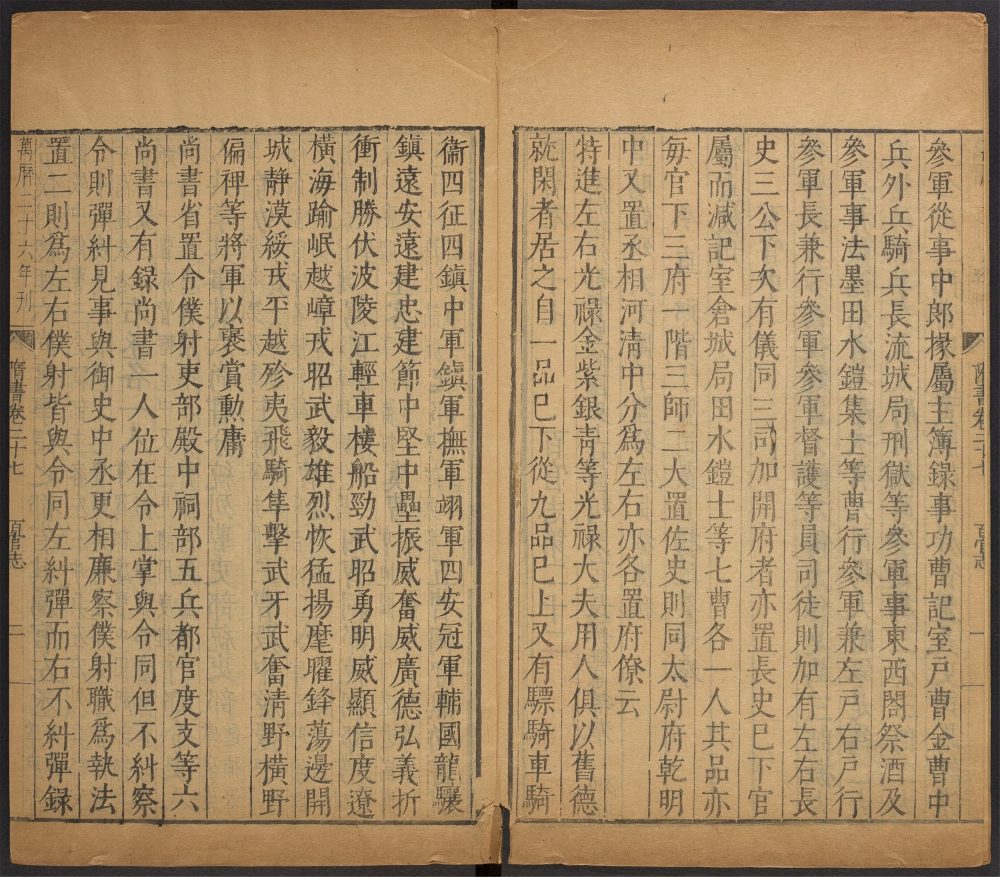 參軍從事中郎掾屬主簿錄事功曹記室戸曹金曹中
兵外兵騎兵長流城局刑獄等參軍事東西閤祭酒及
參軍事法墨田水鎧集士等曹行參軍兼左戸右戸行
參軍長兼行參軍參軍督護等員司徒則加有左右長
史三公下次有儀同三司加開府者亦置長史巳下官
屬而減記室倉城局田水鎧士等七曹各一人其品亦
毎官下三府一階三師二大置佐史則同太尉府乾明
中又置丞相河清中分爲左右亦各置府僚云
特進左右光祿金紫銀青等光祿大夫用人俱以舊德
就閑者居之自一品巳下從九品巳上又有驃騎車騎
衞四征四鎮中軍鎮軍撫軍翊軍四安冠軍輔國龍驤
鎮遠安遠建忠建節中堅中壘振威奮威廣德弘義折
衝制勝伏波陵江輕車樓船勁武昭勇明威顯信度遼
橫海踰岷越嶂戎昭武毅雄烈恢猛揚麾曜鋒蕩邊開
城静漠綏戎平越殄夷飛騎隼擊武牙武奮清野橫野
偏裨等將軍以褒賞勲庸
尚書省置令僕射吏部殿中祠部五兵都官度支等六
尚書又有録尚書一人位在令上掌與令同但不糾察
令則彈糾見事與御史中丞更相廉察僕射職爲執法
置二則爲左右僕射皆與令同左糾彈而右不糾彈録
萬曆二十六年刊
隋書卷二十七 百官志 二